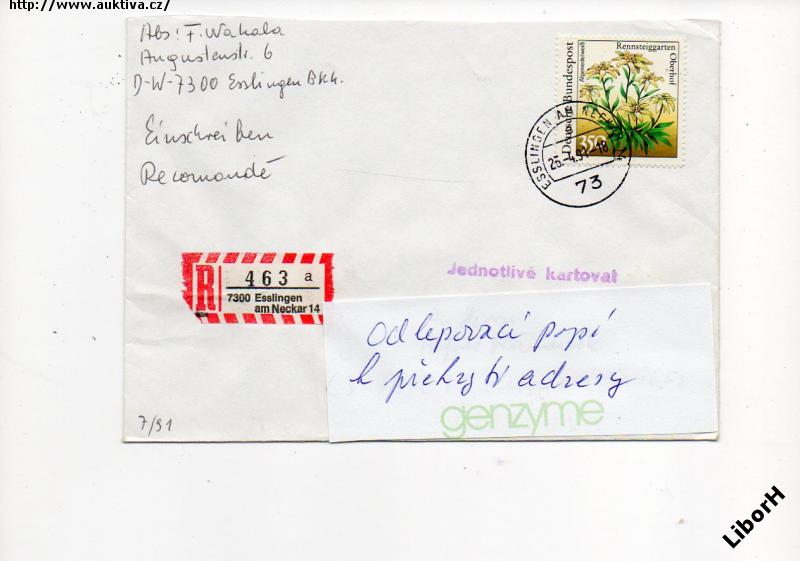 http://www.auktiva.cz/
Abs: F. Wahala
Augustenstr. 6
D-W-7300 Esslingen
Einschreiben
Recomandé
Deutsche Bundespost
Alpenedelweiß
Rennsteiggarten
Oberhof
350
ESSLINGEN AM NECKAR
25.-4.91-18
73
R
463 a
7300 Esslingen
am Neckar 14
Jednotlivě kartovat
Odlepovací papí
k překrytí adresy
genzyme
7/91
LiborH